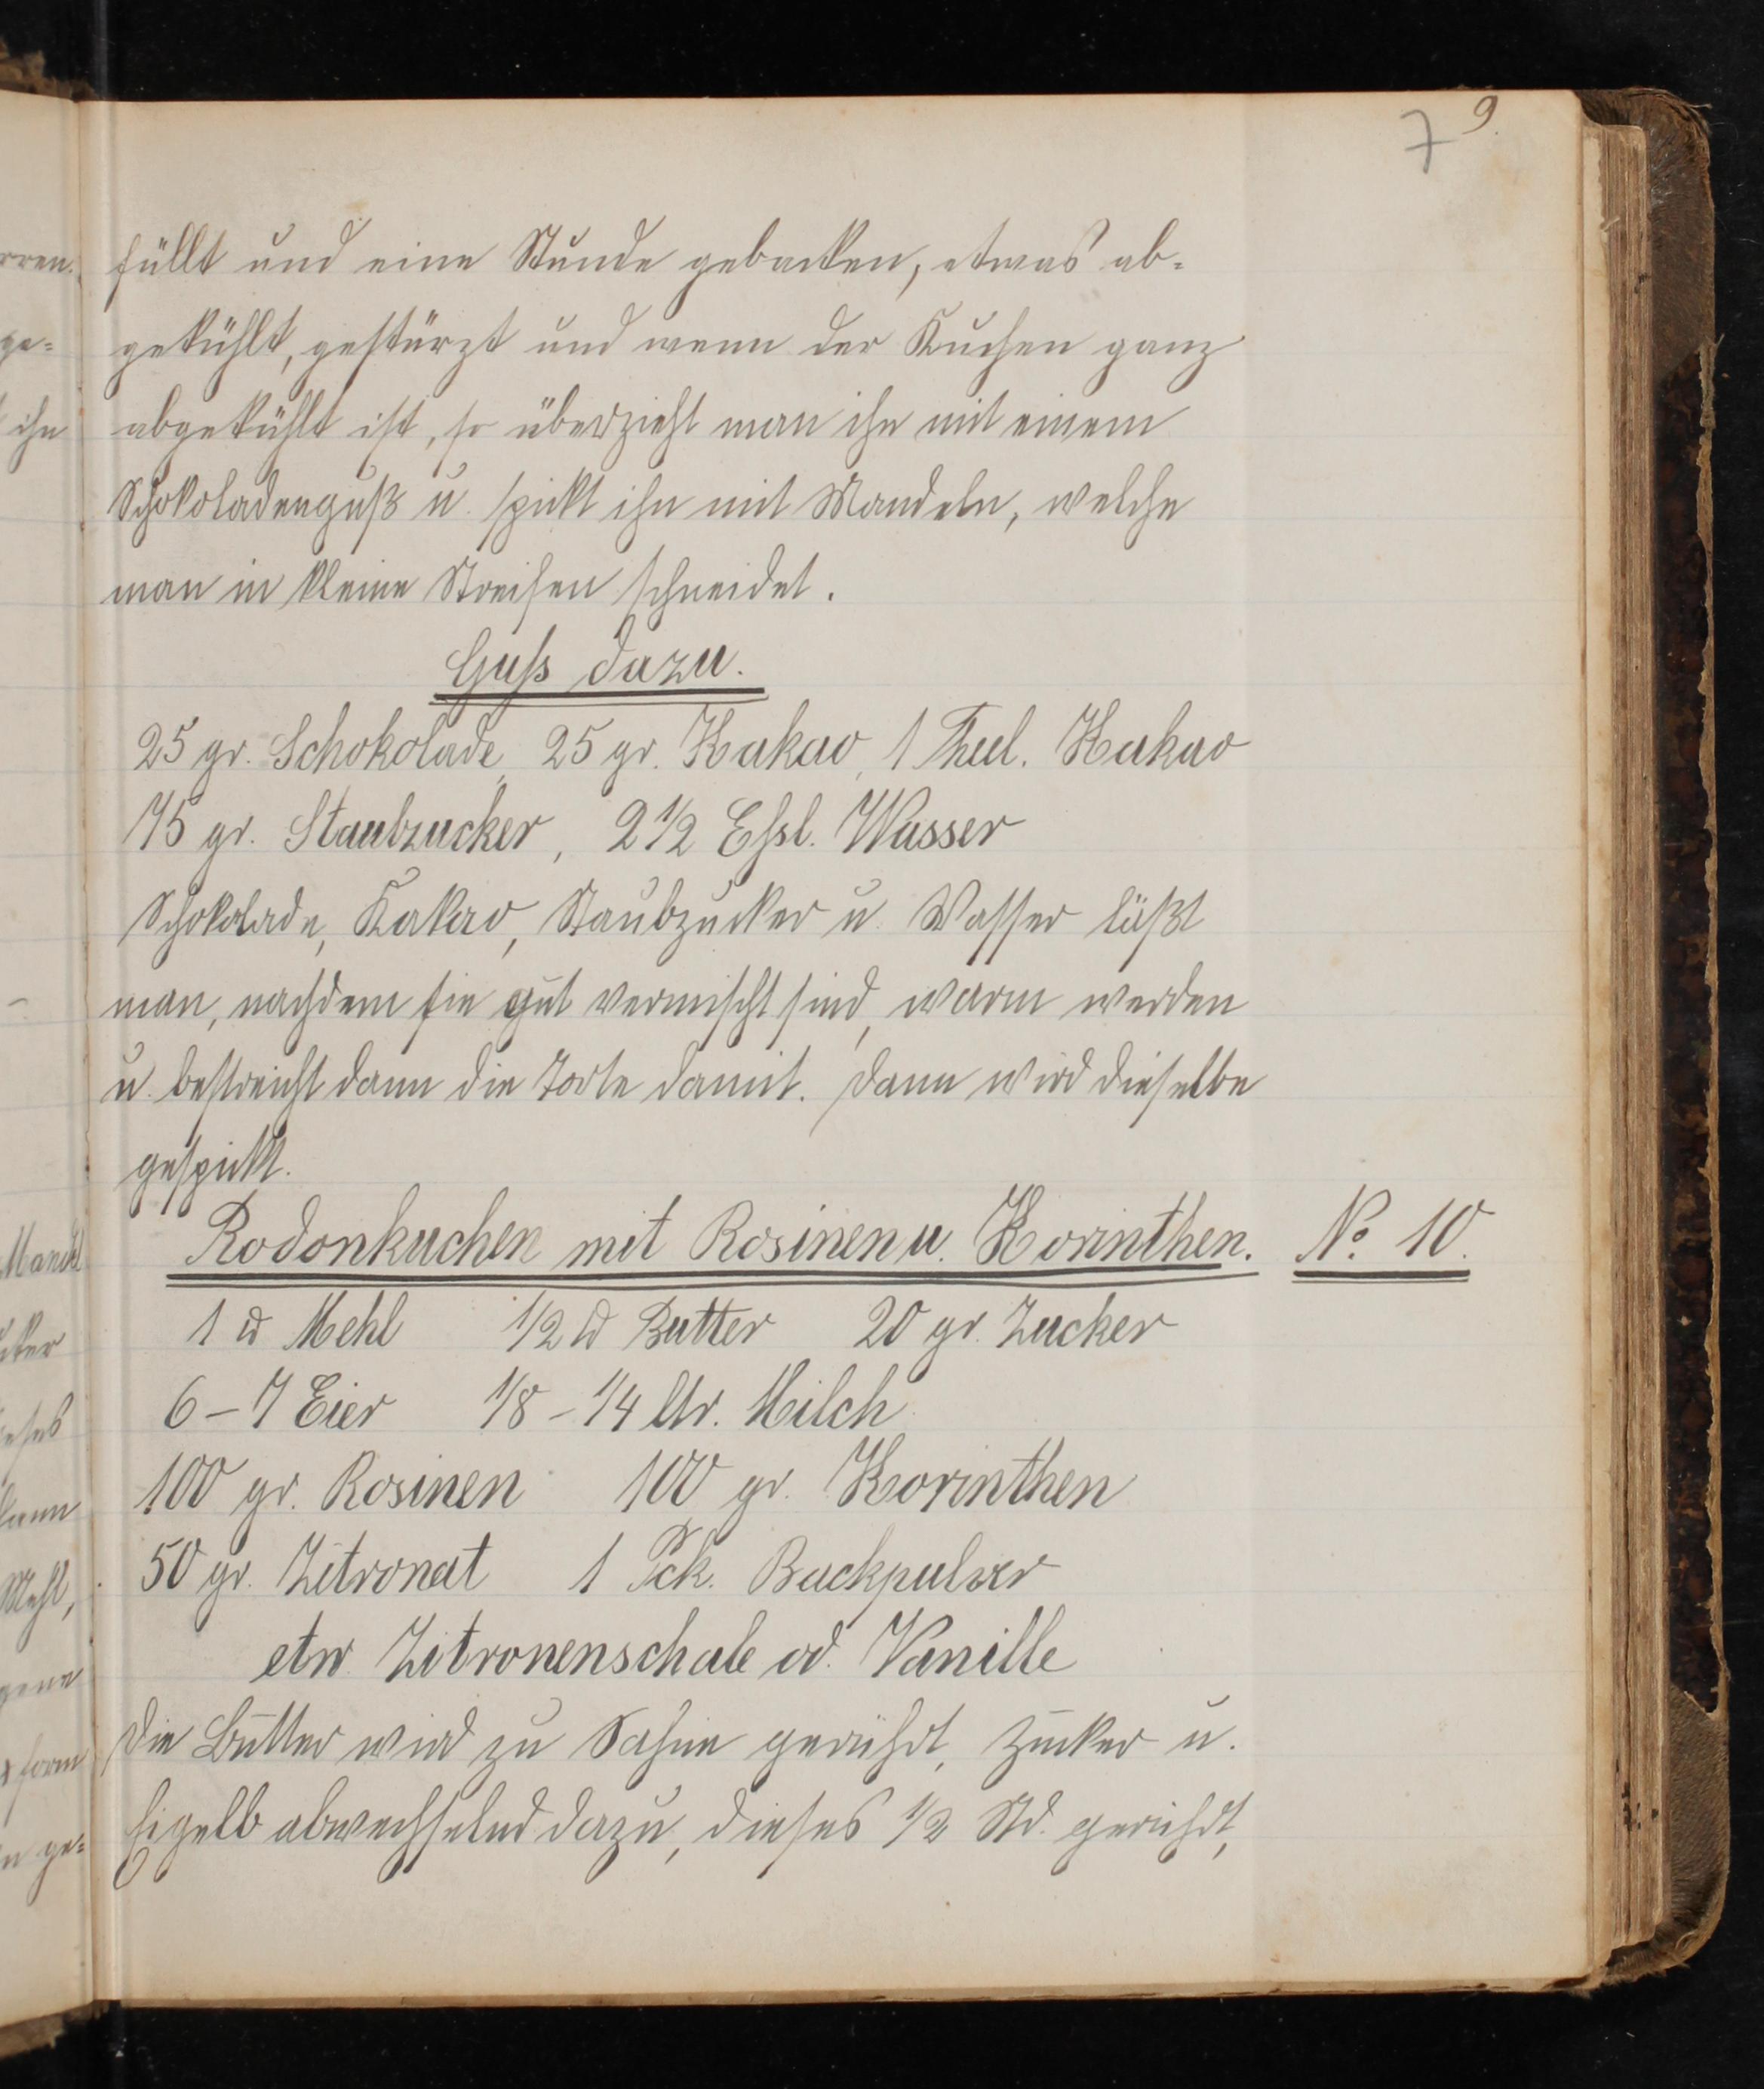 7 9.
füllt und eine Stunde gebacken, etwas ab-
gekühlt, gestürzt und wenn der Kuchen ganz
abgekühlt ist, so überzieht man ihn mit einem
Schokoladenguß u. spickt ihn mit Mandeln, welche
man in kleine Streifen schneidet.
Guss dazu.
25 gr. Schokolade, 25 gr. Kakao, 1 Theel. Kakao
75 gr. Staubzucker, 2 1/2 Essl. Wasser
Schokolade, Kakao, Staubzucker u. Wasser läßt
man, nachdem sie gut vermischt sind, warm werden
u. bestreicht dann die Torte damit. Dann wird dieselbe
gespickt.
Rodonkuchen mit Rosinen u. Korinthen. No. 10.
1 ℔ Mehl 1/2 ℔ Butter 20 gr. Zucker
6-7 Eier 1/8-1/4 ltr. Milch
100 gr. Rosinen 100 gr. Korinthen
50 gr. Zitronat 1 Pck. Backpulver
etw Zitronenschale od. Vanille
Die Butter wird zu Sahne gerührt, Zucker u.
Eigelb abwechselnd dazu, dieses 1/2 Std. gerührt,
rren.
ge-
ihn
Mandel
ieses
dann
Mehl,
form
ge-